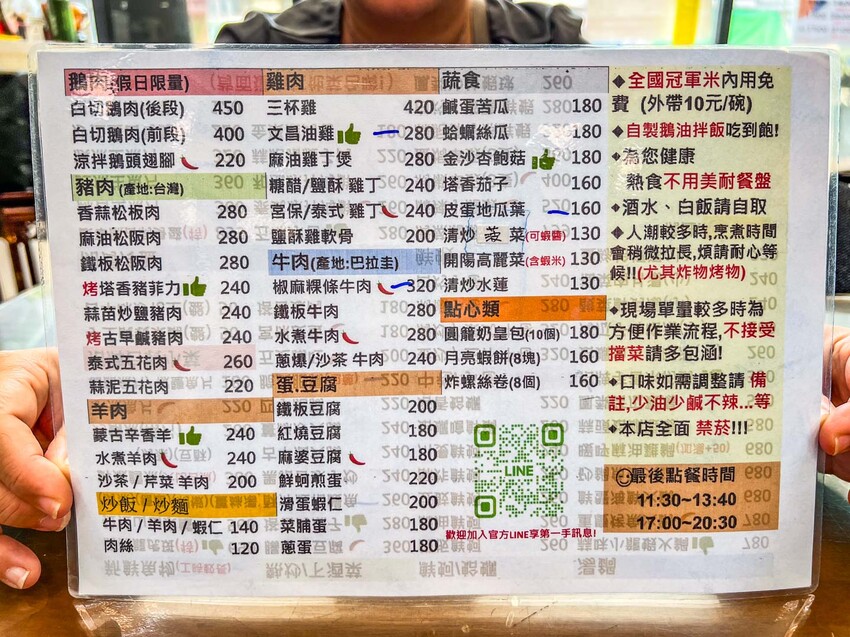 鵝肉(假日限量)
白切鵝肉(後段) 450
白切鵝肉(前段) 400
涼拌鵝頭翅腳 220
豬肉(產地:台灣)
香蒜松板肉 280
麻油松阪肉 280
鐵板松阪肉 280
烤塔香豬菲力 240
蒜苗炒鹽豬肉 240
烤古早鹹豬肉 240
泰式五花肉 260
蒜泥五花肉 220
羊肉
蒙古辛香羊 240
水煮羊肉 240
沙茶/芹菜 羊肉 200
炒飯/炒麵
牛肉/羊肉/蝦仁 140
肉絲 120
雞肉
三杯雞 420
文昌油雞 280
麻油雞丁煲 280
糖醋/鹽酥 雞丁 240
宮保/泰式 雞丁 240
鹽酥雞軟骨 200
牛肉(產地:巴拉圭)
椒麻粿條牛肉 320
鐵板牛肉 280
水煮牛肉 280
蔥爆/沙茶 牛肉 240
蛋.豆腐
鐵板豆腐 200
紅燒豆腐 180
麻婆豆腐 180
鮮蚵煎蛋 220
滑蛋蝦仁 200
菜脯蛋 180
蔥蛋 180
蔬食
鹹蛋苦瓜 180
蛤蠣絲瓜 180
金沙杏鮑菇 180
塔香茄子 160
皮蛋地瓜葉 160
清炒 菜(可蝦醬) 130
開陽高麗菜(含蝦米) 130
清炒水蓮 130
點心類
圓籠奶皇包(10個) 180
月亮蝦餅(8塊) 160
炸螺絲卷(8個) 160
LINE
歡迎加入官方LINE享第一手訊息!
◆全國冠軍米內用免
費 (外帶10元/碗)
◆自製鵝油拌飯吃到飽!
◆為您健康
熱食不用美耐餐盤
◆酒水、白飯請自取
◆人潮較多時,烹煮時間
會稍微拉長,煩請耐心等
候!!(尤其炸物烤物)
◆現場單量較多時為
方便作業流程,不接受
擋菜請多包涵!
◆口味如需調整請 備
註,少油少鹹不辣...等
◆本店全面 禁菸!!!
最後點餐時間
11:30~13:40
17:00~20:30